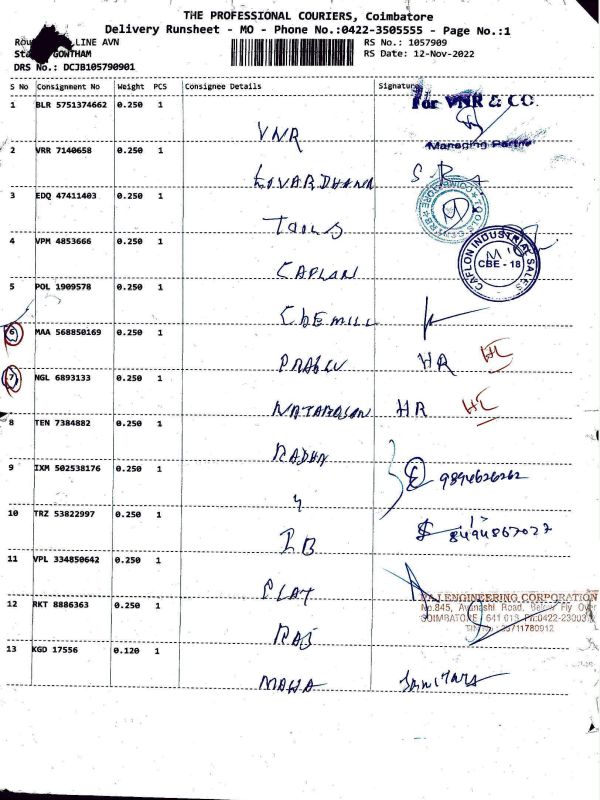 THE PROFESSIONAL COURIERS, Coimbatore
Delivery Runsheet - MO - Phone No.:0422-3505555 - Page No.:1
LINE AVN
RS No.: 1057909
GOWTHAM
RS Date: 12-Nov-2022
DRS No.: DCJB105790901
S No Consignment No Weight PCS Consignee Details Signature
1 BLR 5751374662 0.250 1
For VNR & CO.
VNR
Managing Partne
2 VRR 7140658 0.250 1
3 EDQ 47411403 0.250 1
TOOLS
4 VPM 4853666 0.250 1
CAPLON INDUSTRIAL SALES
CBE - 18
CAPLON
5 POL 1909578 0.250 1
CHEMILL
6 MAA 568850169 0.250 1
PRABHU HR
7 NGL 6893133 0.250 1
NATARAJAN HR
8 TEN 7384882 0.250 1
RADHA
9 IXM 502538176 0.250 1
9894626262
10 TRZ 53822997 0.250 1
11 VPL 334850642 0.250 1
PLAY
RAJ ENGINEERING CORPORATION
12 RKT 8886363 0.250 1
No.845, Avanashi Road, Below Fly Over
COIMBATORE - 641 018
RAJ
13 KGD 17556 0.120 1